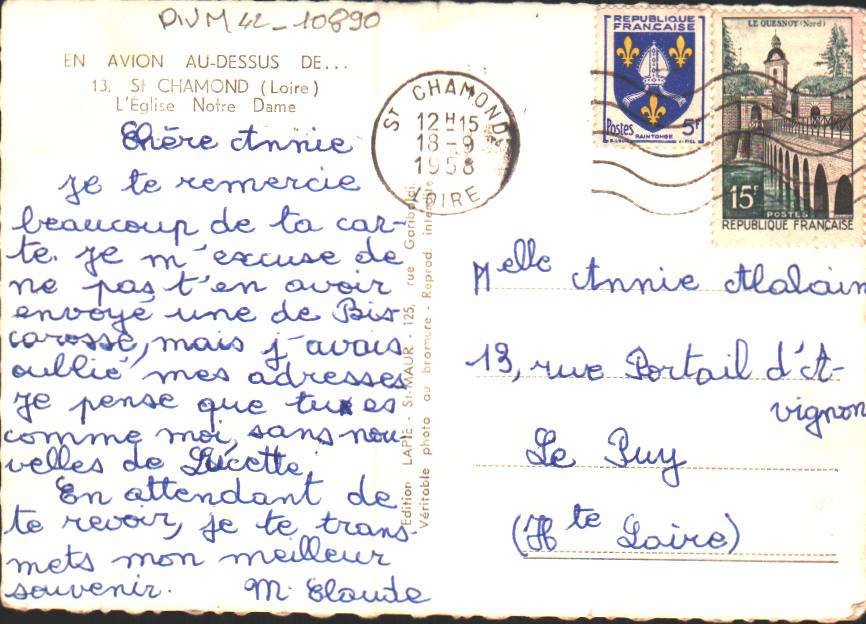 DIVM 42_10890
EN AVION AU-DESSUS DE...
13. St CHAMOND (Loire)
L'Église Notre Dame
Chère Annie
Je te remercie
beaucoup de ta car-
te. Je m'excuse de
ne pas t'en avoir
envoyé une de Bis
carosse, mais j'avais
oublié mes adresses
Je pense que tu es
comme moi, sans nou-
velles de Lucette.
En attendant de
te revoir, je te trans-
mets mon meilleur
souvenir. M. Claude
Edition LAPIE - St-MAUR - 125, rue Garibaldi
Véritable photo au bromure - Reprod. interdite
ST CHAMOND
12H15
18-9
1958
LOIRE
REPUBLIQUE
FRANCAISE
Postes 5F
SAINTONGE
LE QUESNOY (Nord)
15F
POSTES
REPUBLIQUE FRANÇAISE
Melle Annie Alalain
13, rue Portail d'A-
vignon
Le Puy
(Hte Loire)